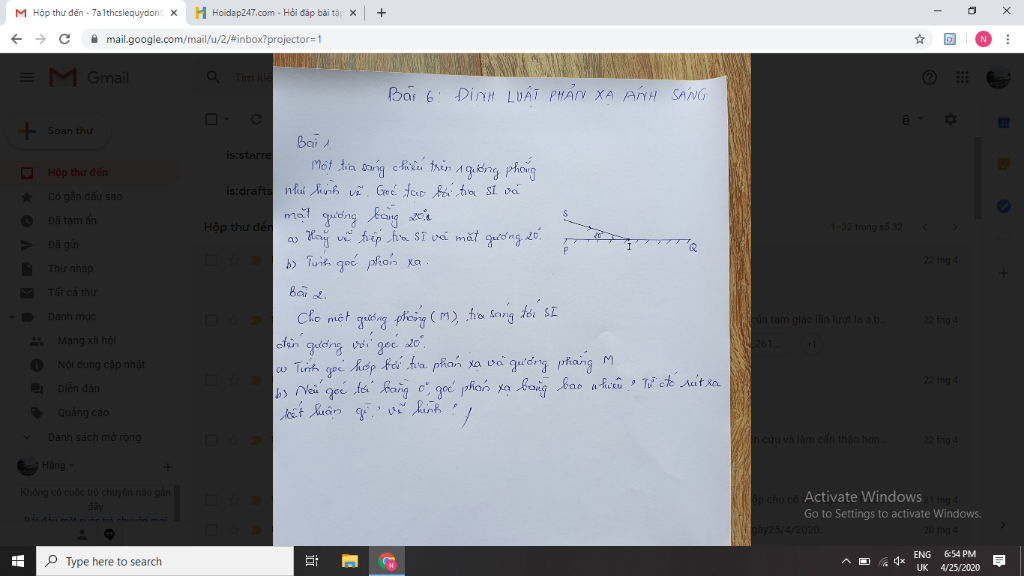 Hộp thư đến - 7a1thcslequydon
Hoidap247.com - Hỏi đáp bài tập
mail.google.com/mail/u/2/#inbox?projector=1
N
Gmail
Tìm kiế
Soạn thư
is:starre
is:drafts
Hộp thư đến
Có gắn dấu sao
Đã tạm ẩn
Đã gửi
Thư nháp
Tất cả thư
Danh mục
Mạng xã hội
Nội dung cập nhật
Diễn đàn
Quảng cáo
Danh sách mở rộng
Hằng
Không có cuộc trò chuyện nào gần
đây
Bắt đầu một cuộc trò chuyện mới
Hộp thư đến
1–32 trong số 32
22 thg 4
của tam giác lần lượt là a,b...
22 thg 4
261...
+1
22 thg 4
n cứu và làm cẩn thận hơn...
22 thg 4
21 thg 4
gày25/4/2020.
20 thg 4
Bài 6: ĐỊNH LUẬT PHẢN XẠ ÁNH SÁNG
Bài 1.
Một tia sáng chiếu trên 1 gương phẳng
như hình vẽ. Góc tạo bởi tia SI và
mặt gương bằng 20°.
a) Hãy vẽ tiếp tia SI và mặt gương 20°.
b) Tính góc phản xạ.
S
20°
P I Q
Bài 2.
Cho một gương phẳng (M), tia sáng tới SI
đến gương với góc 20°.
a) Tính góc hợp bởi tia phản xạ và gương phẳng M.
b) Nếu góc tới bằng 0°, góc phản xạ bằng bao nhiêu? Từ đó rút ra
kết luận gì? vẽ hình?
Activate Windows
Go to Settings to activate Windows.
Type here to search
ENG
UK
6:54 PM
4/25/2020